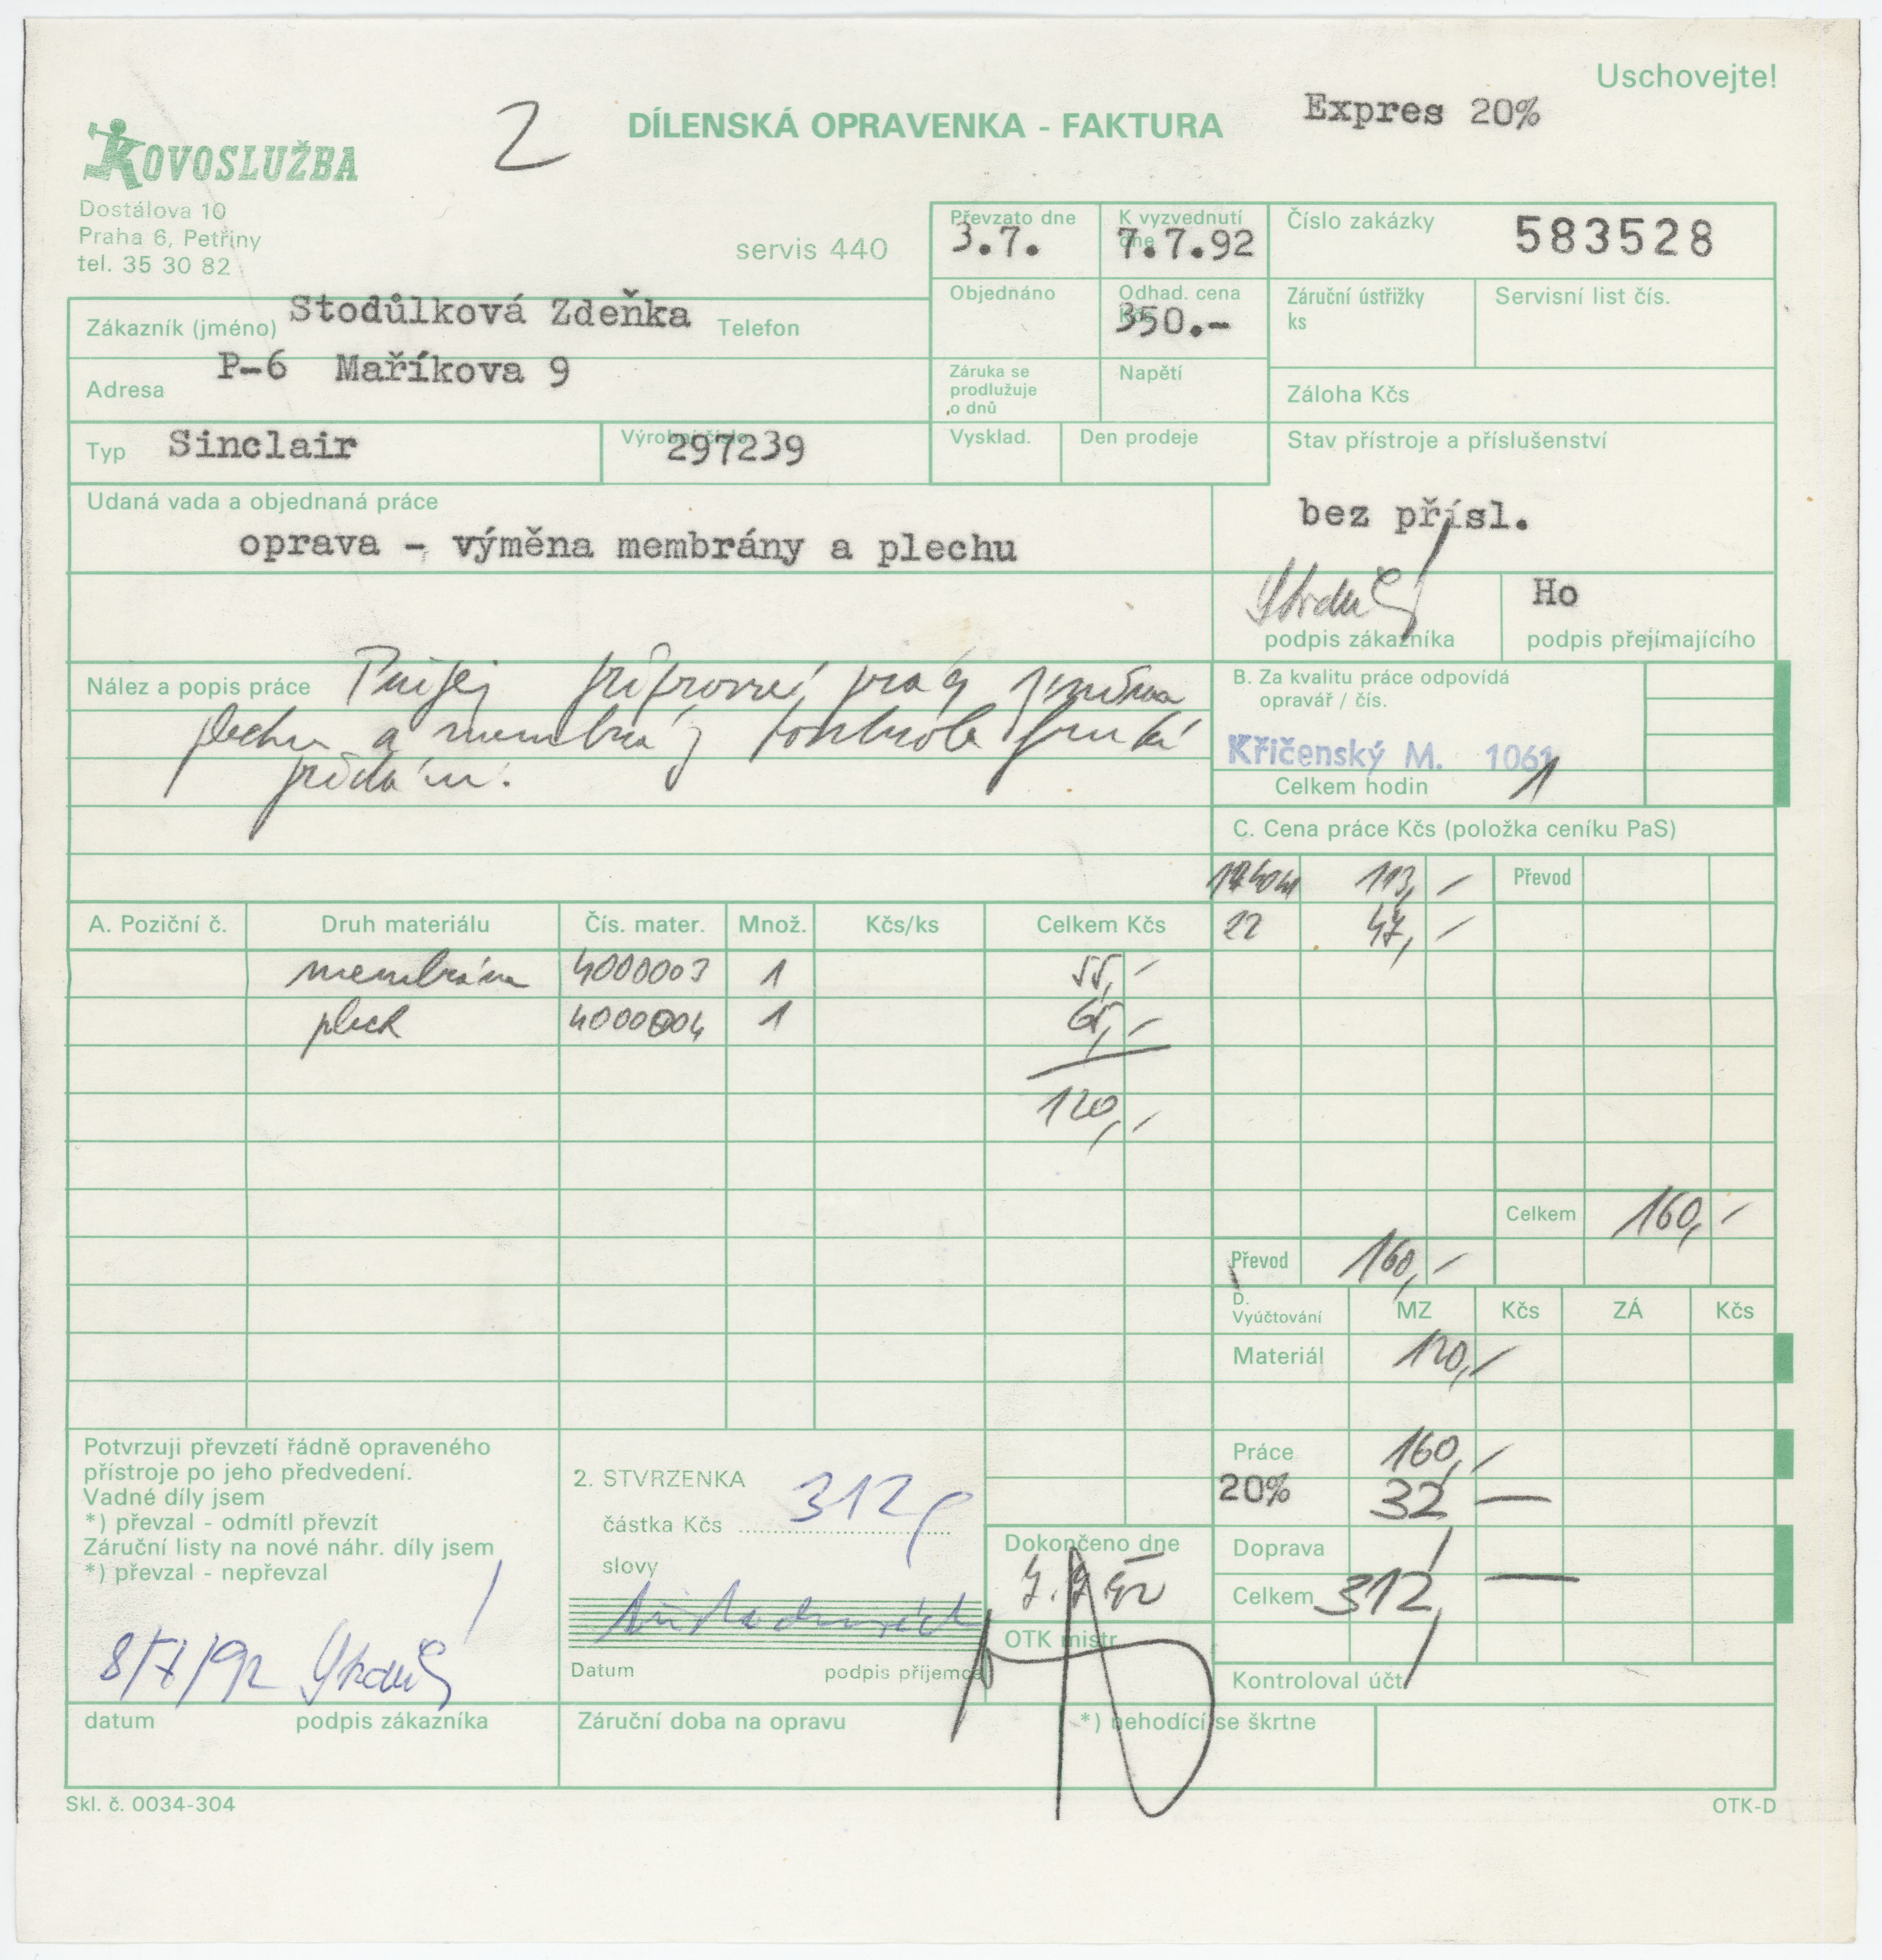 Uschovejte!
2
DÍLENSKÁ OPRAVENKA - FAKTURA
Expres 20%
KOVOSLUŽBA
Dostálova 10
Praha 6, Petřiny
tel. 35 30 82
servis 440
Převzato dne
3.7.
K vyzvednutí dne
7.7.92
Číslo zakázky
583528
Zákazník (jméno) Stodůlková Zdeňka Telefon
Objednáno
Odhad. cena Kčs
350.-
Záruční ústřižky
ks
Servisní list čís.
Adresa P-6 Maříkova 9
Záruka se
prodlužuje
o dnů
Napětí
Záloha Kčs
Typ Sinclair
Výrobní číslo
297239
Vysklad.
Den prodeje
Stav přístroje a příslušenství
bez přísl.
Udaná vada a objednaná práce
oprava - výměna membrány a plechu
podpis zákazníka
Ho
podpis přejímajícího
Nález a popis práce
plechu a membrány kontrola
B. Za kvalitu práce odpovídá
opravář / čís.
Křičenský M. 1061
Celkem hodin 1
C. Cena práce Kčs (položka ceníku PaS)
113,-
Převod
22 47,-
A. Poziční č. Druh materiálu Čís. mater. Množ. Kčs/ks Celkem Kčs
membrána 4000003 1 55,-
plech 4000004 1 65,-
120,-
Celkem 160,-
Převod 160,-
D.
Vyúčtování MZ Kčs ZÁ Kčs
Materiál 120,-
Práce 160,-
20% 32 —
Doprava
Celkem 312, —
Kontroloval účt.
Potvrzuji převzetí řádně opraveného
přístroje po jeho předvedení.
Vadné díly jsem
*) převzal - odmítl převzít
Záruční listy na nové náhr. díly jsem
*) převzal - nepřevzal
8/7/92
datum podpis zákazníka
2. STVRZENKA
částka Kčs 312,
slovy
Datum podpis příjemce
Dokončeno dne
OTK mistr
Záruční doba na opravu
*) nehodící se škrtne
Skl. č. 0034-304
OTK-D